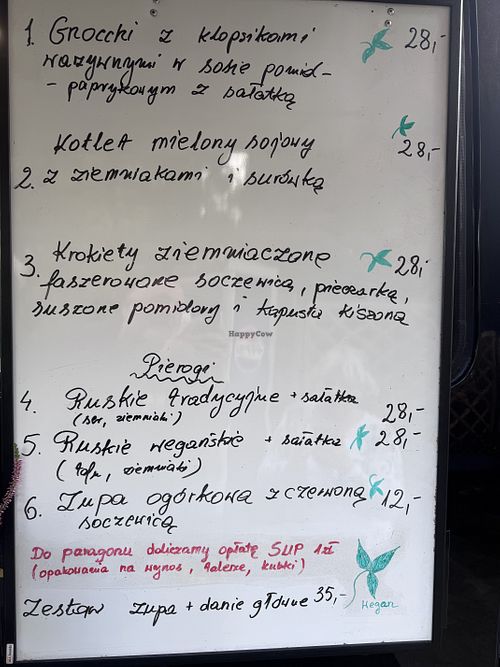 1. Gnocchi z klopsikami 28,-
warzywnymi w sosie pomid-
- paprykowym z sałatką
Kotlet mielony sojowy 28,-
2. z ziemniakami i surówką
3. Krokiety ziemniaczane 28,-
faszerowane soczewicą, pieczarką,
suszone pomidory i kapusta kiszoną
HappyCow
Pierogi
4. Ruskie tradycyjne + sałatka 28,-
(ser, ziemniaki)
5. Ruskie wegańskie + sałatka 28,-
(tofu, ziemniaki)
6. Zupa ogórkowa z czerwoną 12,-
soczewicą
Do paragonu doliczamy opłatę SUP 1zł
(opakowania na wynos, talerze, kubki)
Zestaw zupa + danie główne 35,-
Wegan